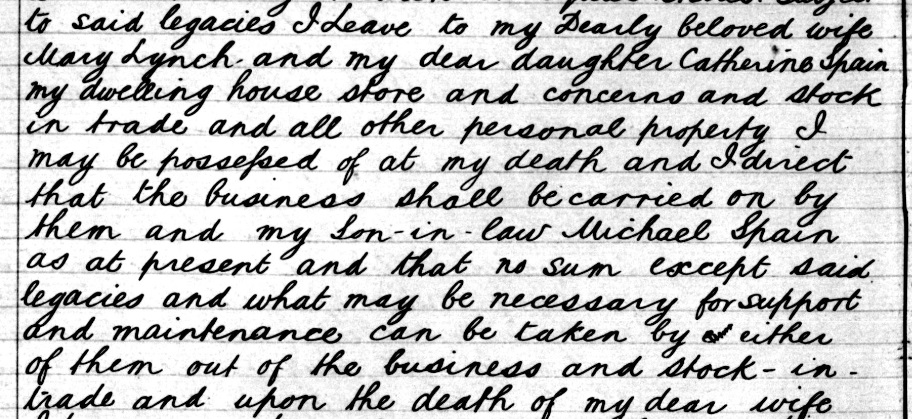 to said legacies I Leave to my Dearly beloved wife
Mary Lynch and my dear daughter Catherine Spain
my dwelling house store and concerns and stock
in trade and all other personal property I
may be possessed of at my death and I direct
that the business shall be carried on by
them and my Son-in-law Michael Spain
as at present and that no sum except said
legacies and what may be necessary for support
and maintenance can be taken by either
of them out of the business and stock-in-
trade and upon the death of my dear wife